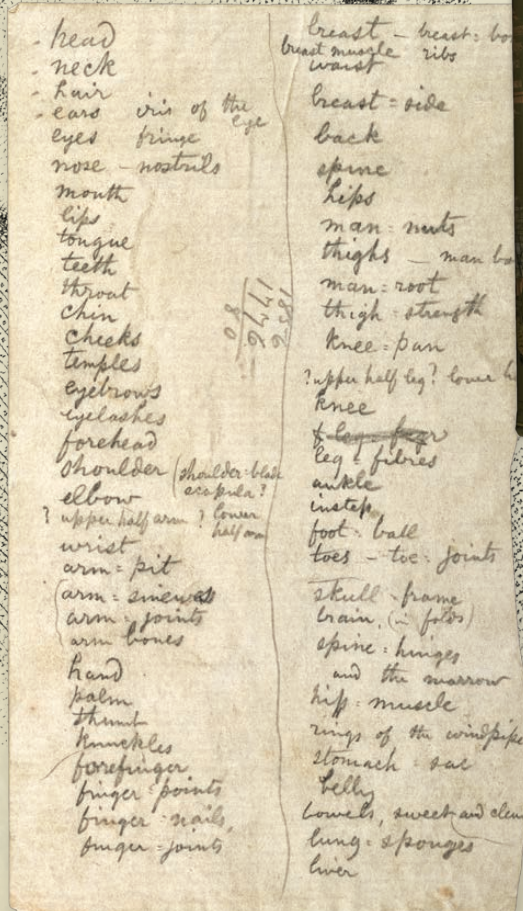 head
neck
hair
ears iris of the eye
eyes fringe
nose - nostrils
mouth
lips
tongue
teeth
throat
chin
cheeks
temples
eyebrows
eyelashes
forehead
shoulder (shoulder-blade
scapula?
elbow
? upper half arm ? lower
half arm
wrist
arm = pit
(arm = sinews
arm = joints
arm bones
hand
palm
thumb
knuckles
forefinger
finger = points
finger = nails,
finger = joints
1856
1776
80
breast - breast =
breast muscle ribs
waist
breast = side
back
spine
hips
man = nuts
thighs - man
man = root
thigh = strength
knee = pan
? upper half leg? lower
knee
leg = fibres
ankle
instep
foot = ball
toes - toe = joints
skull - frame
brain, (in folds)
spine = hinges
and the marrow
hip = muscle
rings of the windpipe
stomach = sac
belly
bowels, sweet and clean
lung = sponges
liver